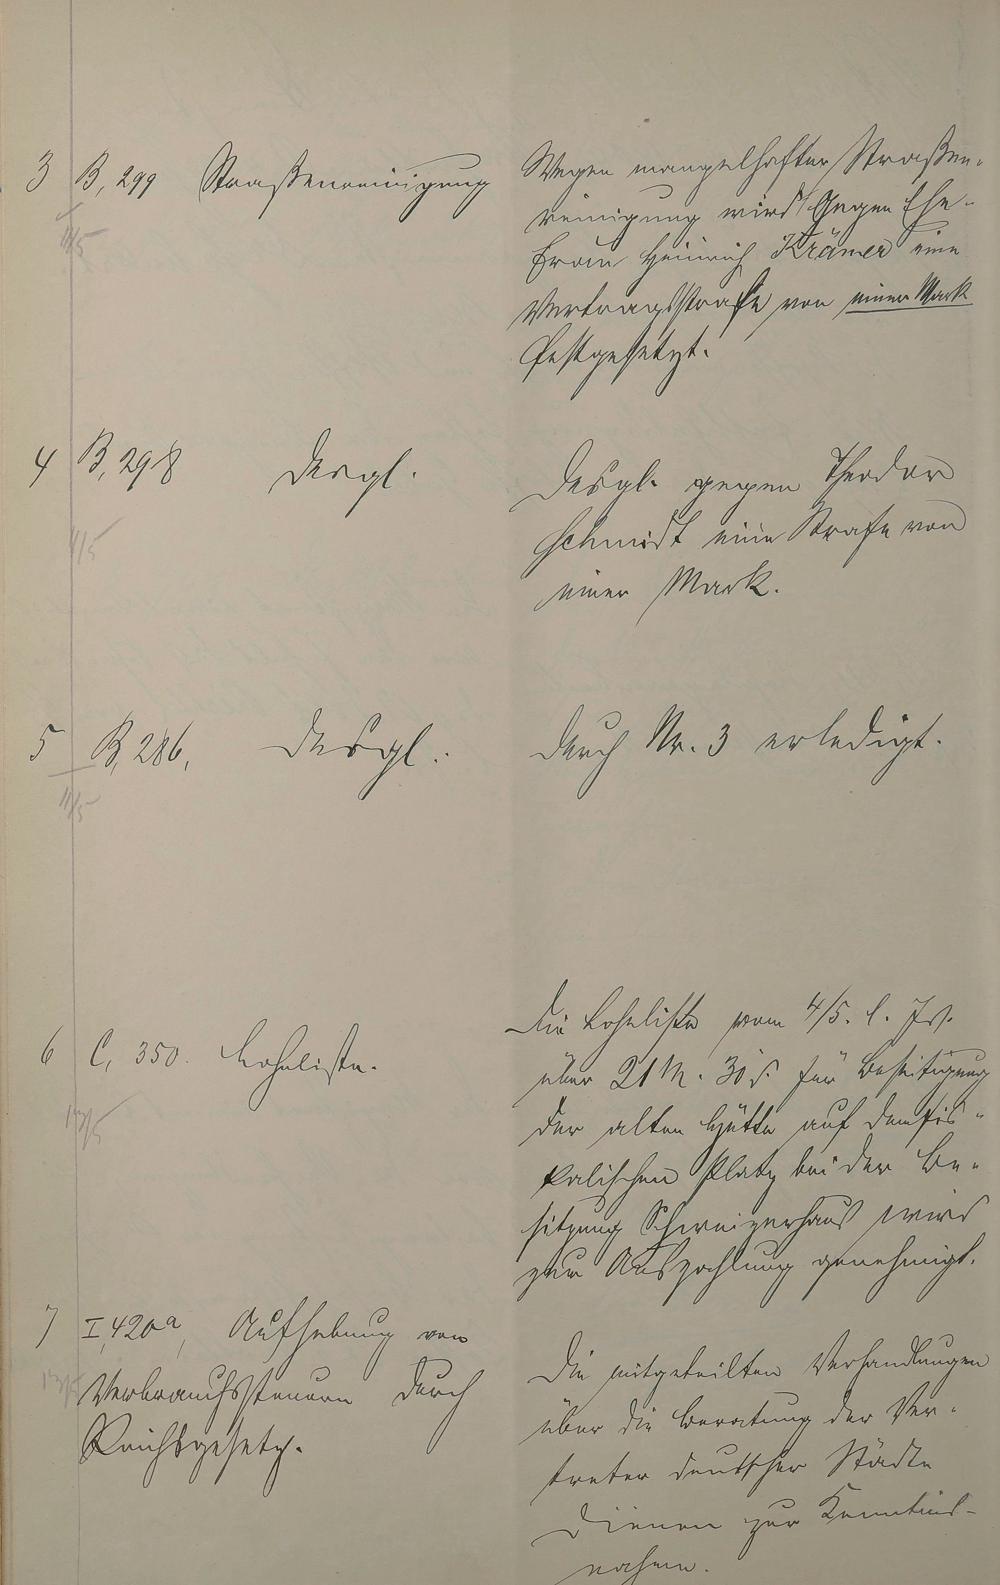 3 B, 299 Straßenreinigung
11/5
Wegen mangelhafter Straßen-
reinigung wird gegen Ehe-
frau Heinrich Krämer eine
Vertragsstrafe von einer Mark
festgesetzt.
4 B, 298 Desgl.
11/5
Desgl. gegen Theodor
Schmidt eine Strafe von
einer Mark.
5 B, 286, Desgl.
11/5
Durch Nr. 3 erledigt.
6 C, 350. Lohnliste.
13/5
Die Lohnliste vom 4/5. l. Js.
über 21 M. 30 δ für Beseitigung
der alten Hütte auf dem fis-
kalischen Platz bei der Be-
sitzung Schweizerhaus wird
zur Auszahlung genehmigt.
7 I, 420a, Aufhebung von
13/5
Verbrauchssteuern durch
Reichsgesetz.
Die mitgeteilten Verhandlungen
über die Beratung der Ver-
treter deutscher Städte
dienen zur Kenntnis-
nahme.